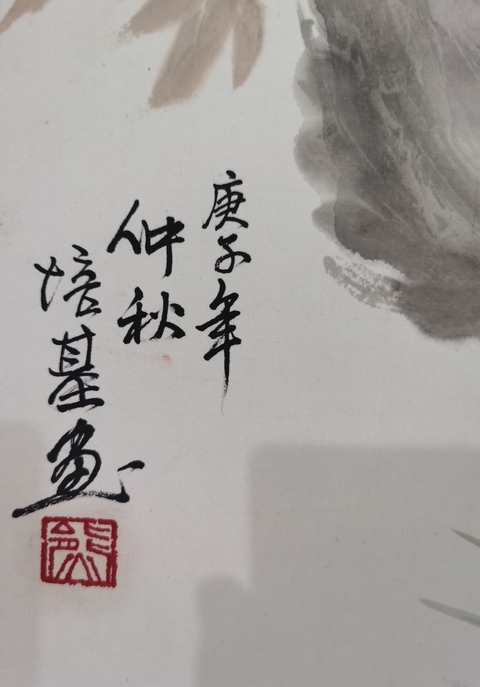 庚子年
仲秋
培基画